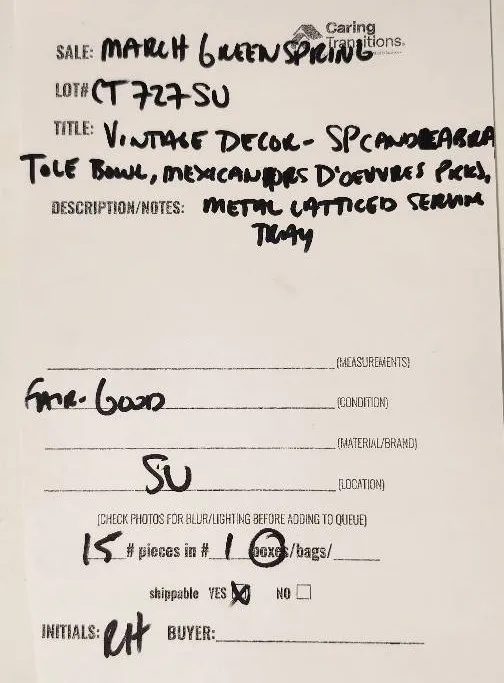 Caring
Transitions.
SALE: MARCH GREENSPRING
LOT# CT727SU
TITLE: VINTAGE DECOR - SP CANDEABRA
TOLE BOWL, MEXICAN HORS D'OEUVRES PICKS,
DESCRIPTION/NOTES: METAL LATTICED SERVING
TRAY
(MEASUREMENTS)
FAIR-GOOD (CONDITION)
(MATERIAL/BRAND)
SU (LOCATION)
(CHECK PHOTOS FOR BLUR/LIGHTING BEFORE ADDING TO QUEUE)
15 # pieces in # 1 boxes/bags/
shippable YES NO
INITIALS: RH BUYER: